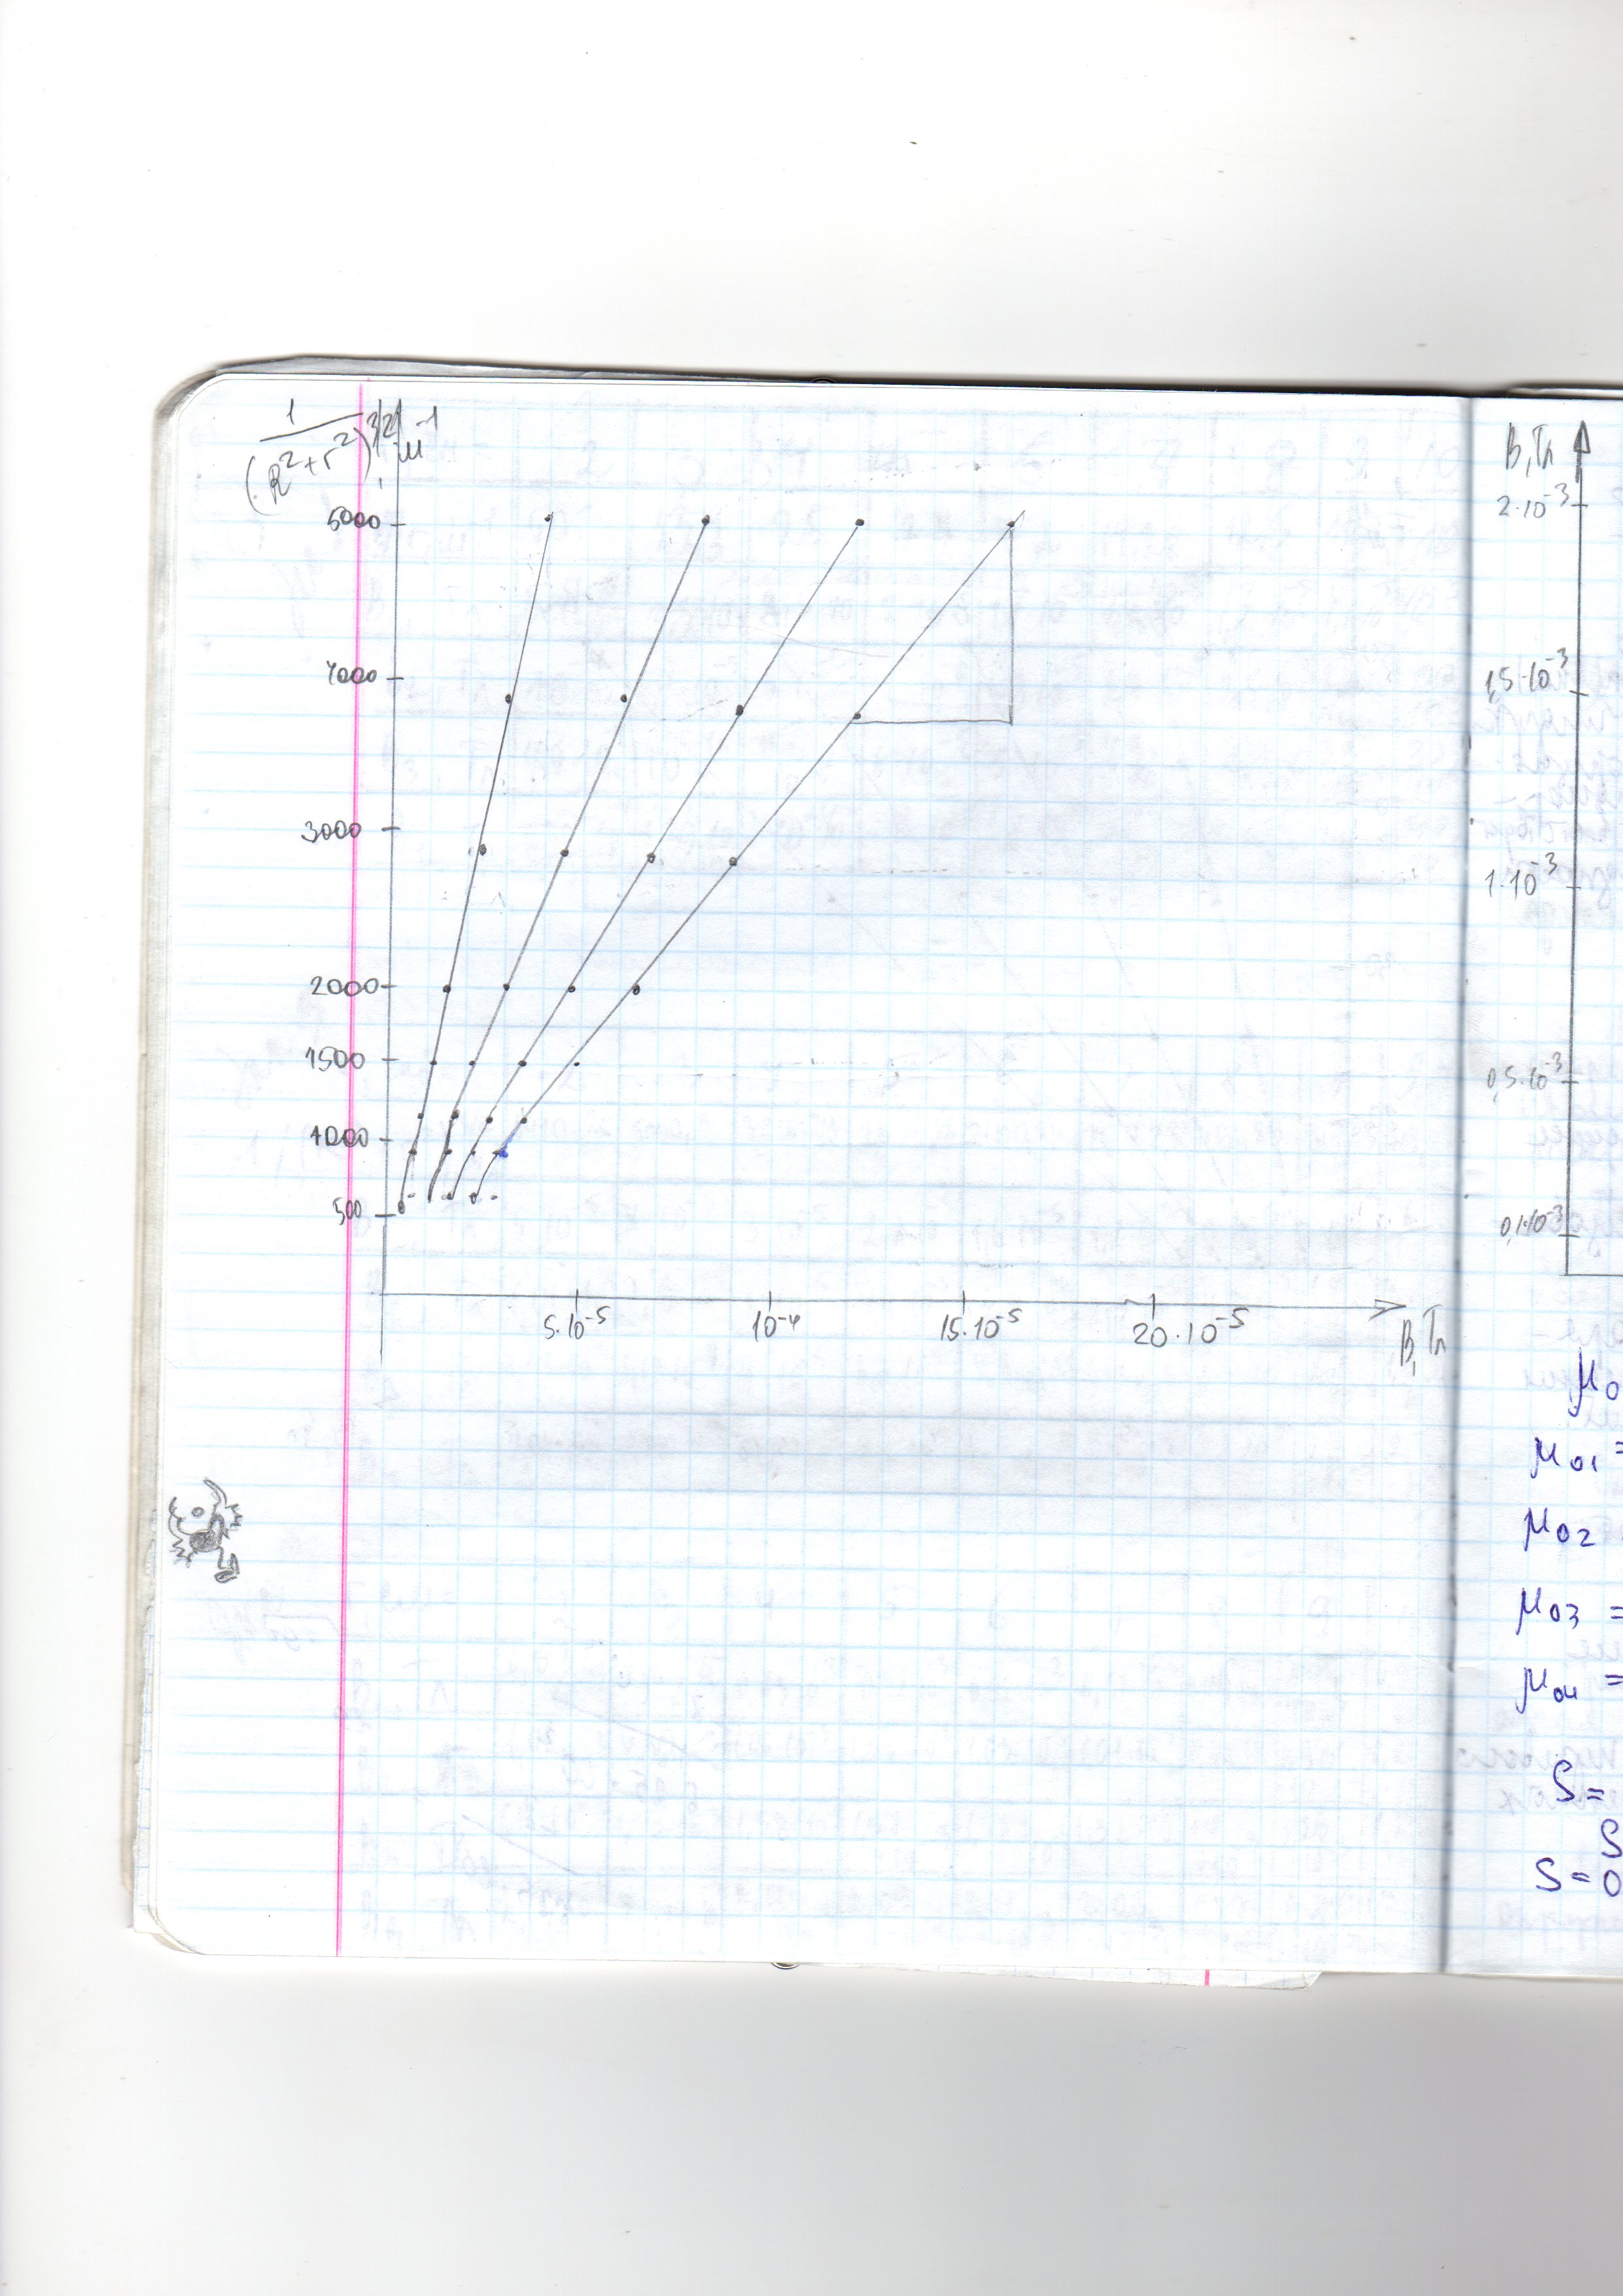 1
(R²+r²)^3/2, м⁻¹
5000
4000
3000
2000
1500
1000
500
5·10⁻⁵
10⁻⁴
15·10⁻⁵
20·10⁻⁵
B, Тл
B, Тл
2·10⁻³
1,5·10⁻³
1·10⁻³
0,5·10⁻³
0,1·10⁻³
μ0
μ01 =
μ02
μ03 =
μ04 =
S =
S
S = 0